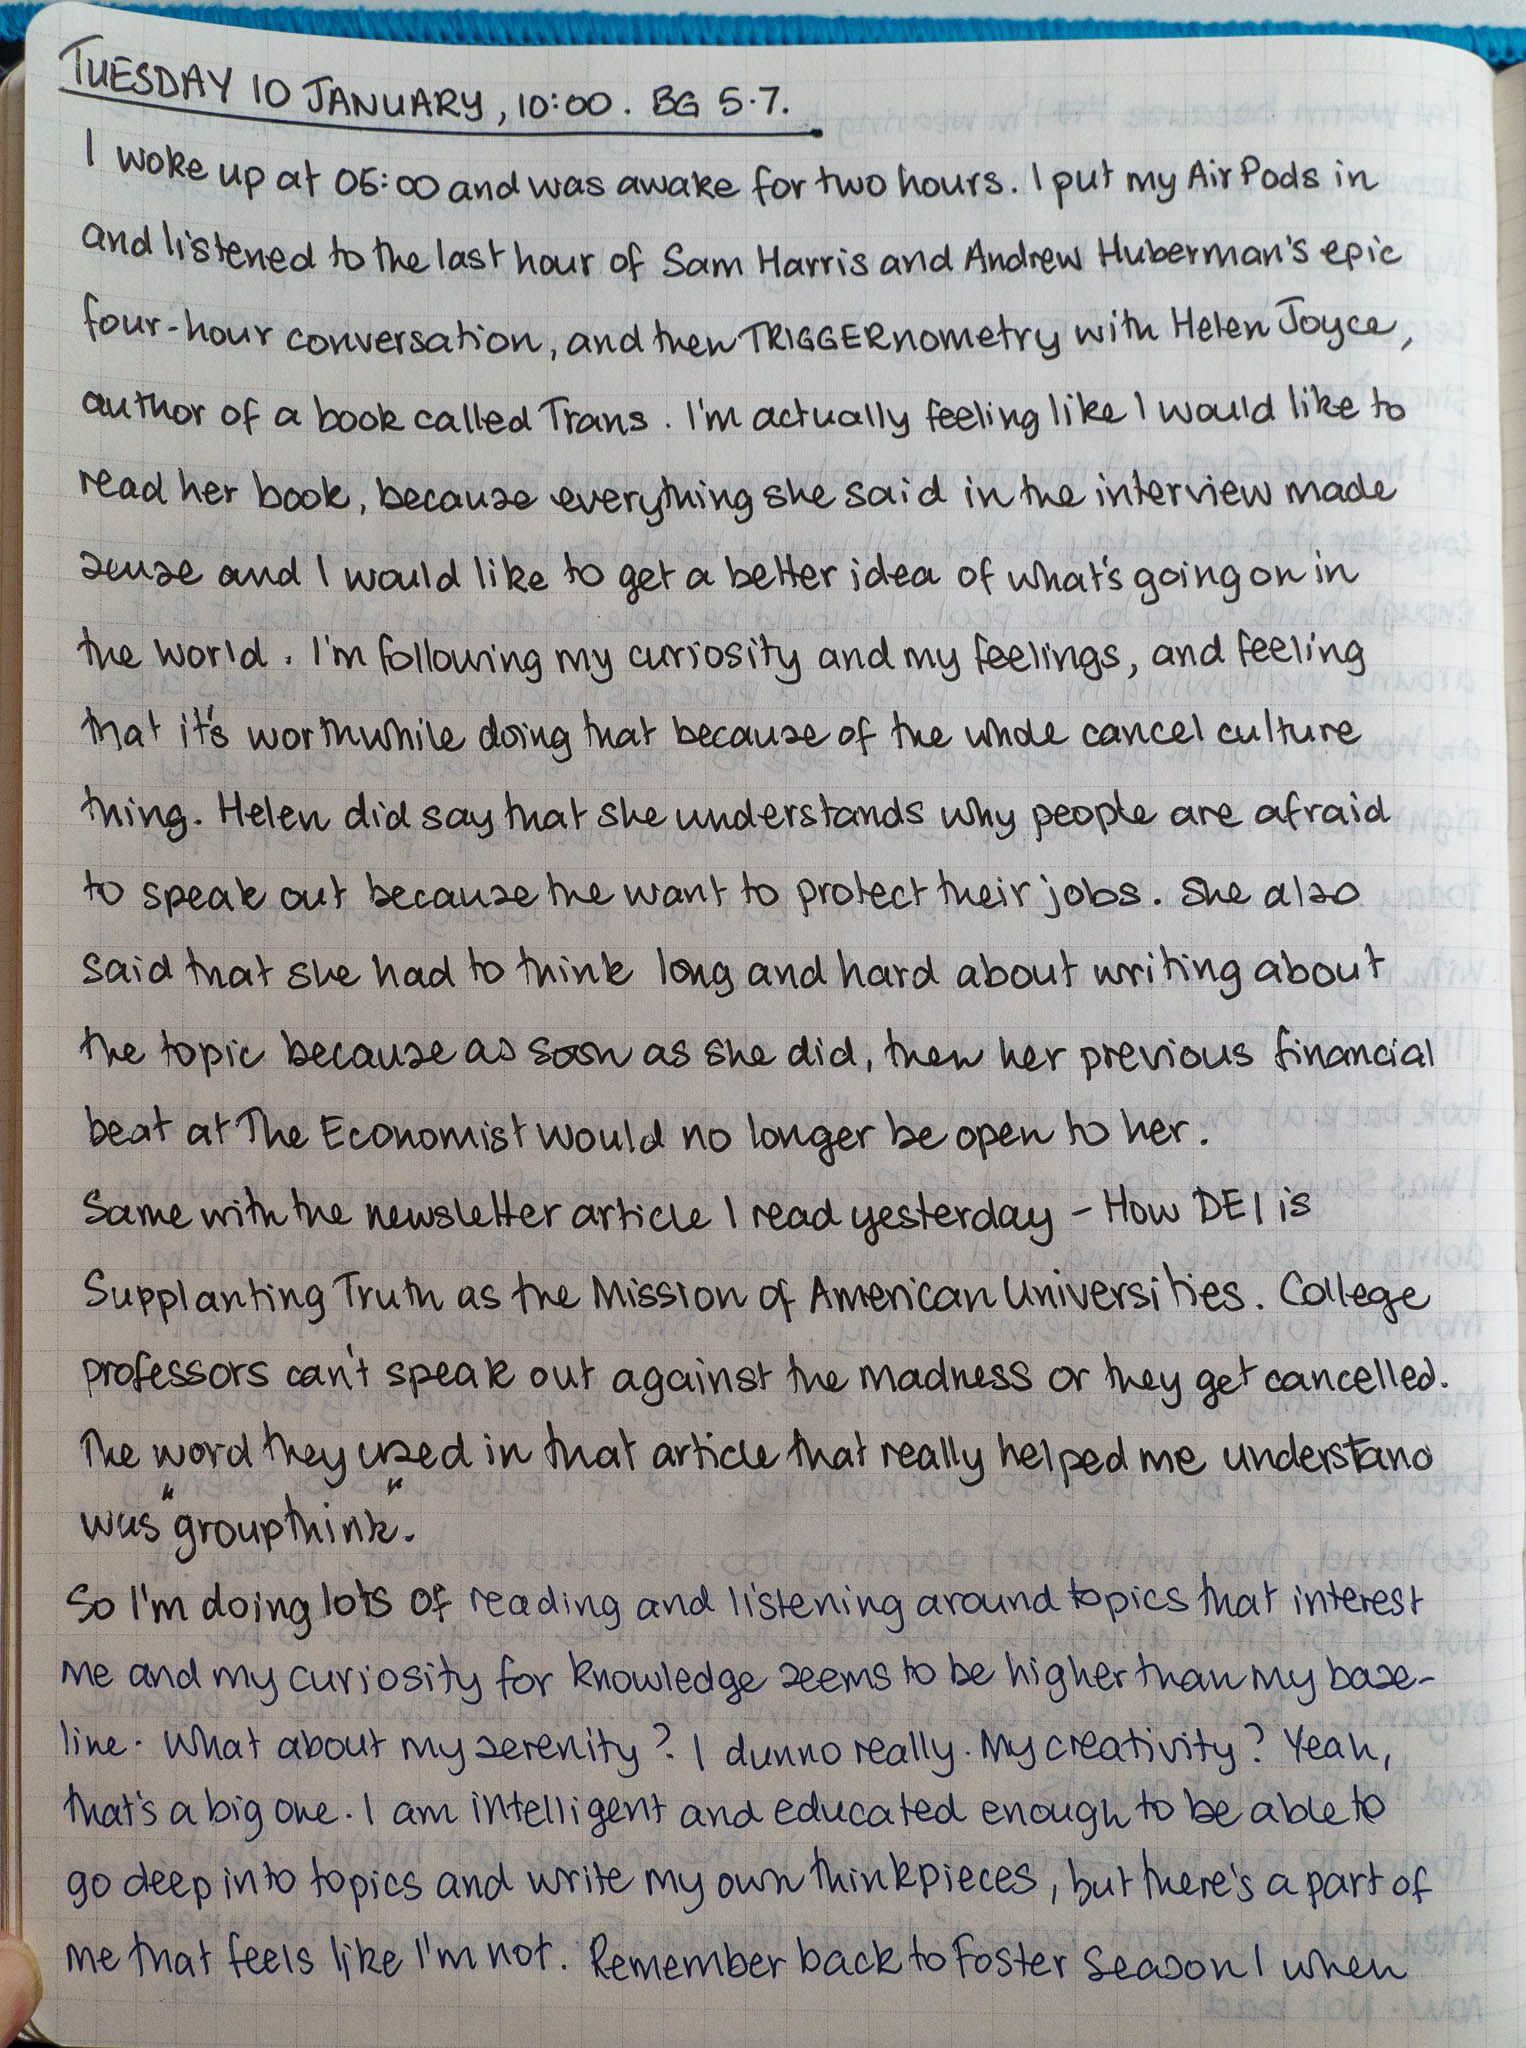 TUESDAY 10 JANUARY, 10:00. BG 5.7.
I woke up at 05:00 and was awake for two hours. I put my AirPods in
and listened to the last hour of Sam Harris and Andrew Huberman's epic
four-hour conversation, and then TRIGGERnometry with Helen Joyce,
author of a book called Trans. I'm actually feeling like I would like to
read her book, because everything she said in the interview made
sense and I would like to get a better idea of what's going on in
the world. I'm following my curiosity and my feelings, and feeling
that it's worthwhile doing that because of the whole cancel culture
thing. Helen did say that she understands why people are afraid
to speak out because the want to protect their jobs. She also
said that she had to think long and hard about writing about
the topic because as soon as she did, then her previous financial
beat at The Economist would no longer be open to her.
Same with the newsletter article I read yesterday - How DEI is
Supplanting Truth as the Mission of American Universities. College
professors can't speak out against the madness or they get cancelled.
The word they used in that article that really helped me understand
was "groupthink".
So I'm doing lots of reading and listening around topics that interest
me and my curiosity for knowledge seems to be higher than my base-
line. What about my serenity? I dunno really. My creativity? Yeah,
that's a big one. I am intelligent and educated enough to be able to
go deep into topics and write my own thinkpieces, but there's a part of
me that feels like I'm not. Remember back to Foster Season 1 when